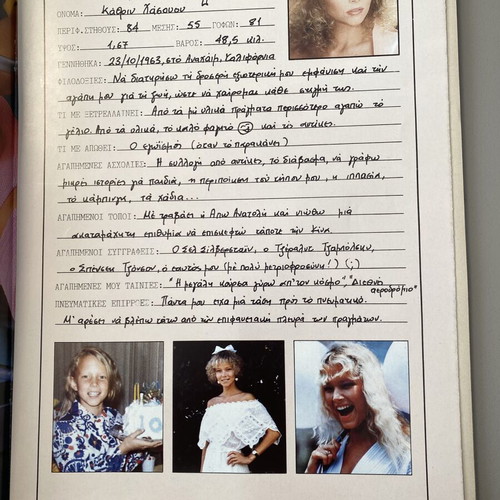 ΟΝΟΜΑ: Κάθριν Χάουσον
ΠΕΡΙΦ.ΣΤΗΘΟΥΣ: 84 ΜΕΣΗΣ: 55 ΓΟΦΩΝ: 81
ΥΨΟΣ: 1,67 ΒΑΡΟΣ: 48,5 κιλ.
ΓΕΝΝΗΘΗΚΑ: 23/10/1963, στο Αναχάιμ, Καλιφόρνια
ΦΙΛΟΔΟΞΙΕΣ: Να διατηρήσω τη δροσερή εξωτερική μου εμφάνιση και την
αγάπη μου για τη ζωή, ώστε να χαίρομαι κάθε στιγμή της.
ΤΙ ΜΕ ΞΕΤΡΕΛΛΑΙΝΕΙ: Από τα μη υλικά πράγματα περισσότερο αγαπώ το
γέλιο. Από τα υλικά, το καλό φαγητό και το αντίκες.
ΤΙ ΜΕ ΑΠΩΘΕΙ: Ο εγωϊσμός (όταν το παρακάνει)
ΑΓΑΠΗΜΕΝΕΣ ΑΣΧΟΛΙΕΣ: Η συλλογή από αντίκες, το διάβασμα, να γράφω
μικρές ιστορίες για παιδιά, η περιποίηση του κήπου μου, η ιππασία,
το κάμπινγκ, τα χάδια...
ΑΓΑΠΗΜΕΝΟΙ ΤΟΠΟΙ: Με τραβάει η Άπω Ανατολή και νιώθω μιά
ακαταμάχητη επιθυμία να επισκεφτώ κάποτε την Κίνα.
ΑΓΑΠΗΜΕΝΟΙ ΣΥΓΓΡΑΦΕΙΣ: Ο Σελ Σίλβερσταϊν, ο Τζέραλντ Τζαμπόλσκυ,
ο Σπένσερ Τζόνσον, ο εαυτός μου (με πολύ μετριοφροσύνη!) (;)
ΑΓΑΠΗΜΕΝΕΣ ΜΟΥ ΤΑΙΝΙΕΣ: "Η μεγάλη κούρσα γύρω απ' τον κόσμο", "Διεθνή
αεροδρόμιο"
ΠΝΕΥΜΑΤΙΚΕΣ ΕΠΙΡΡΟΕΣ: Πάντα μου είχα μιά τάση πρός το πνευματικό.
Μ' αρέσει να βλέπω κάτω από την επιφανειακή πλευρά των πραγμάτων.